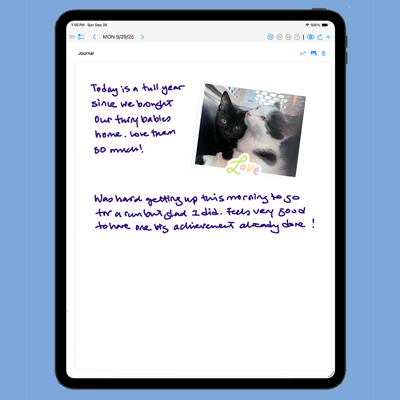 1:05 PM Sun Sep 28
100%
MON 9/29/25
Journal
Today is a full year
since we brought
our furry babies
home. Love them
so much!
Love
Was hard getting up this morning to go
for a run but glad I did. Feels very good
to have one big achievement already done!